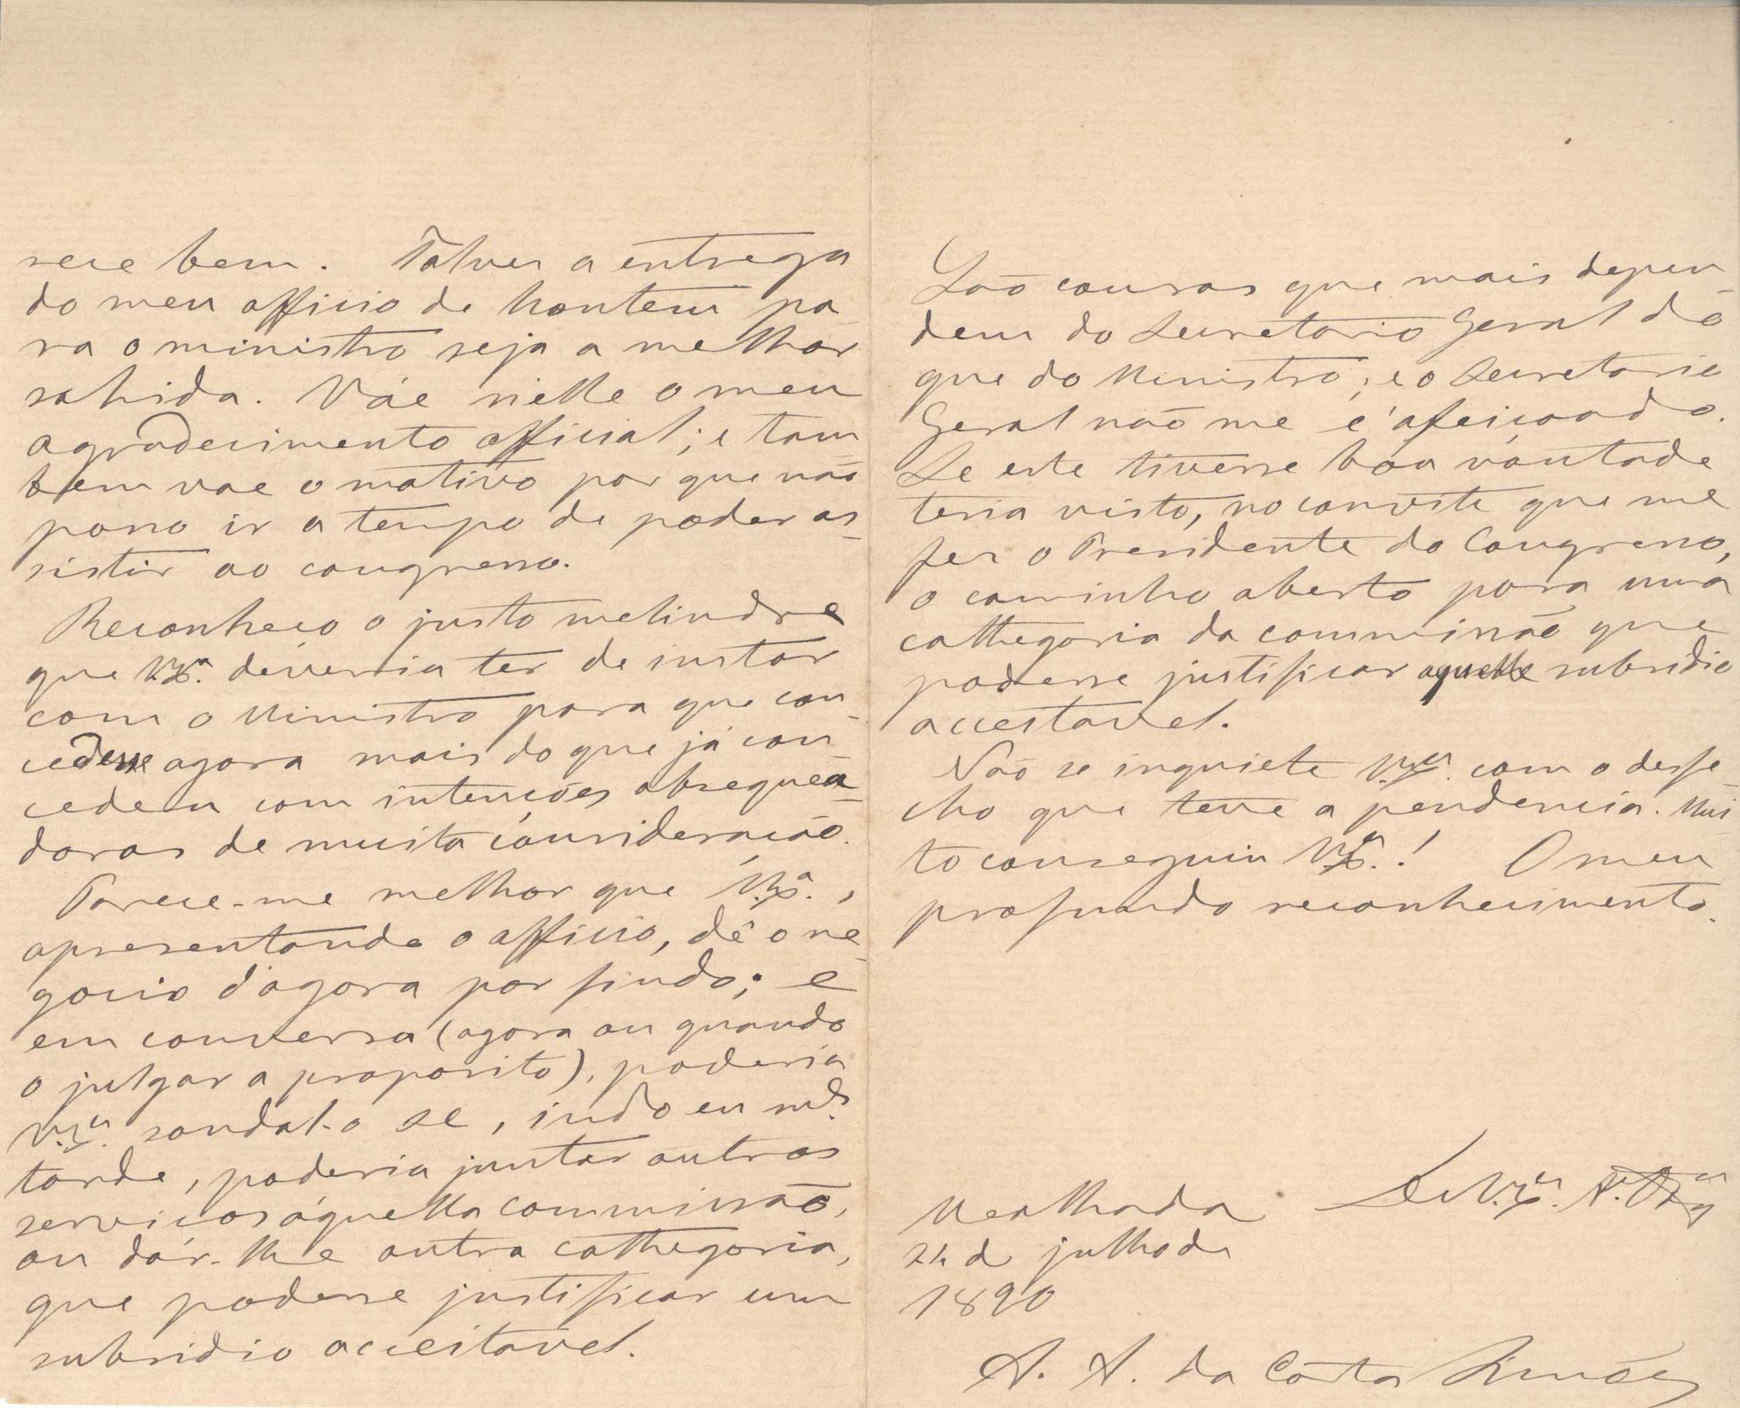 rece bem. Talvez a entrega
do meu officio de hontem pa
ra o ministro seja a melhor
sahida. Váe n'elle o meu
agradecimento official; e tam
bem vae o motivo por que não
posso ir a tempo de poder as
sistir ao congresso.
Reconheço o justo melindre
que V.Ex.ª deveria ter de instar
com o Ministro para que con
cedesse agora mais do que já con
cedeu com intenções obsequea
doras de muita consideração.
Parece-me melhor que V.Ex.ª,
apresentando o officio, dê o ne
gocio d'agora por findo; e
em conversa (agora ou quando
o julgar a proposito), poderia
V.Ex.ª sondal-o se, indo eu m.s
tarde, poderia juntar outros
serviços áquella commissão,
ou dár-lhe outra cathegoria,
que podesse justificar um
subsidio acceitavel.
São cousas que mais depen
dem do Secretario Geral do
que do Ministro; e o Secretario
Geral não me é afeiçoado.
Se este tivesse boa vontade
teria visto, no convite que me
fez o Presidente do Congresso,
o caminho aberto para uma
cathegoria da commissão que
podesse justificar aquelle subsidio
acceitavel.
Não se inquiete V.Ex.ª com o desfe
cho que teve a pendencia. Mui
to conseguiu V.Ex.ª! O meu
profundo reconhecimento.
De V.Ex.ª
Mealhada
24 de julho de
1890
A. A. da Costa Simões